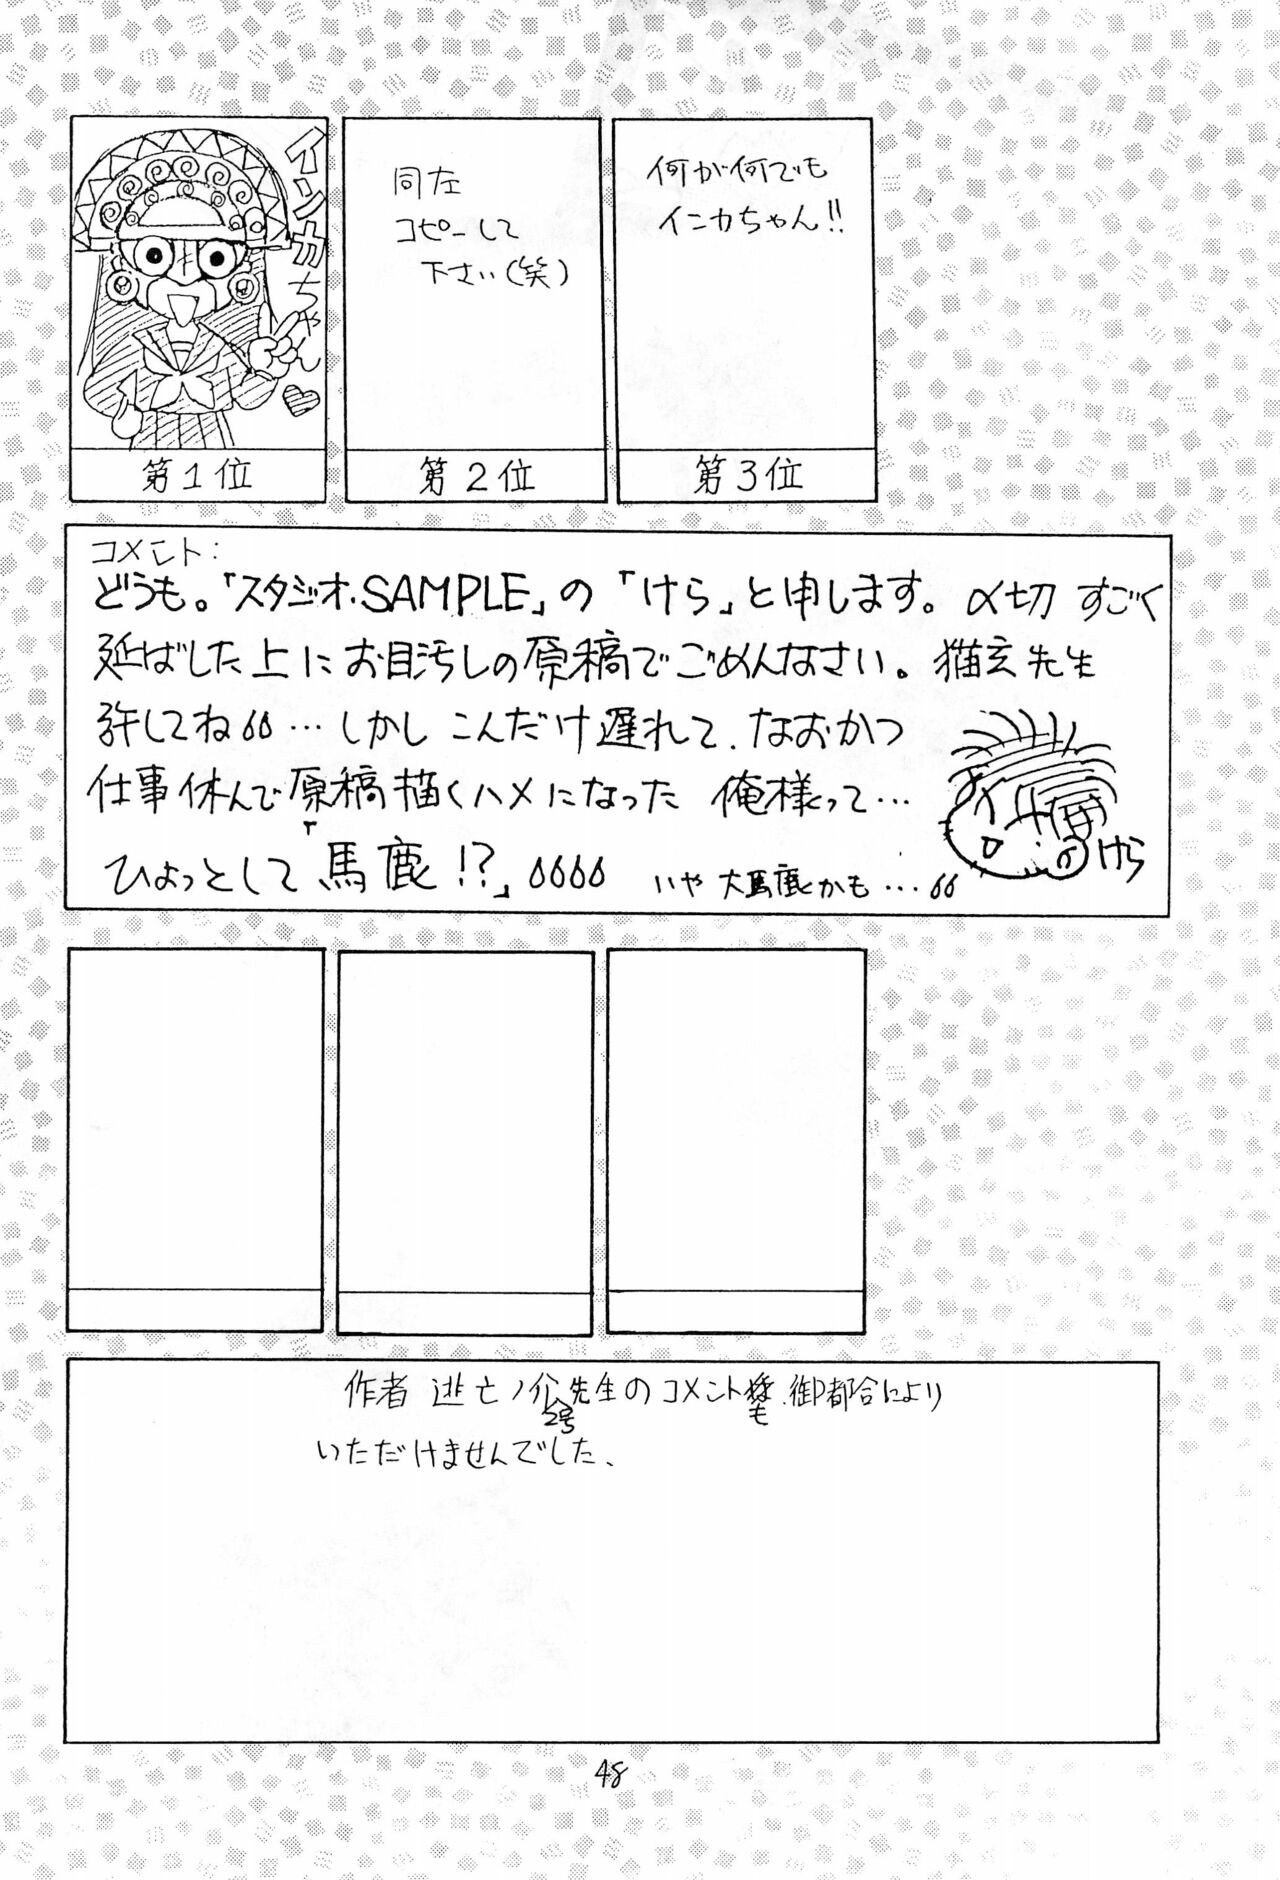 インカちゃん♡
第1位
同左
コピーして
下さい(笑)
第2位
何が何でも
インカちゃん!!
第3位
コメント:
どうも。「スタジオ・SAMPLE」の「けら」と申します。〆切すごく
延ばした上にお目汚しの原稿でごめんなさい。猫玄先生
許してね…しかしこんだけ遅れて、なおかつ
仕事休んで原稿描くハメになった俺様って…
ひょっとして「馬鹿!?」
いや大馬鹿かも…
けら
作者 逃亡ノ介2号先生のコメントも、御都合により
いただけませんでした、
48